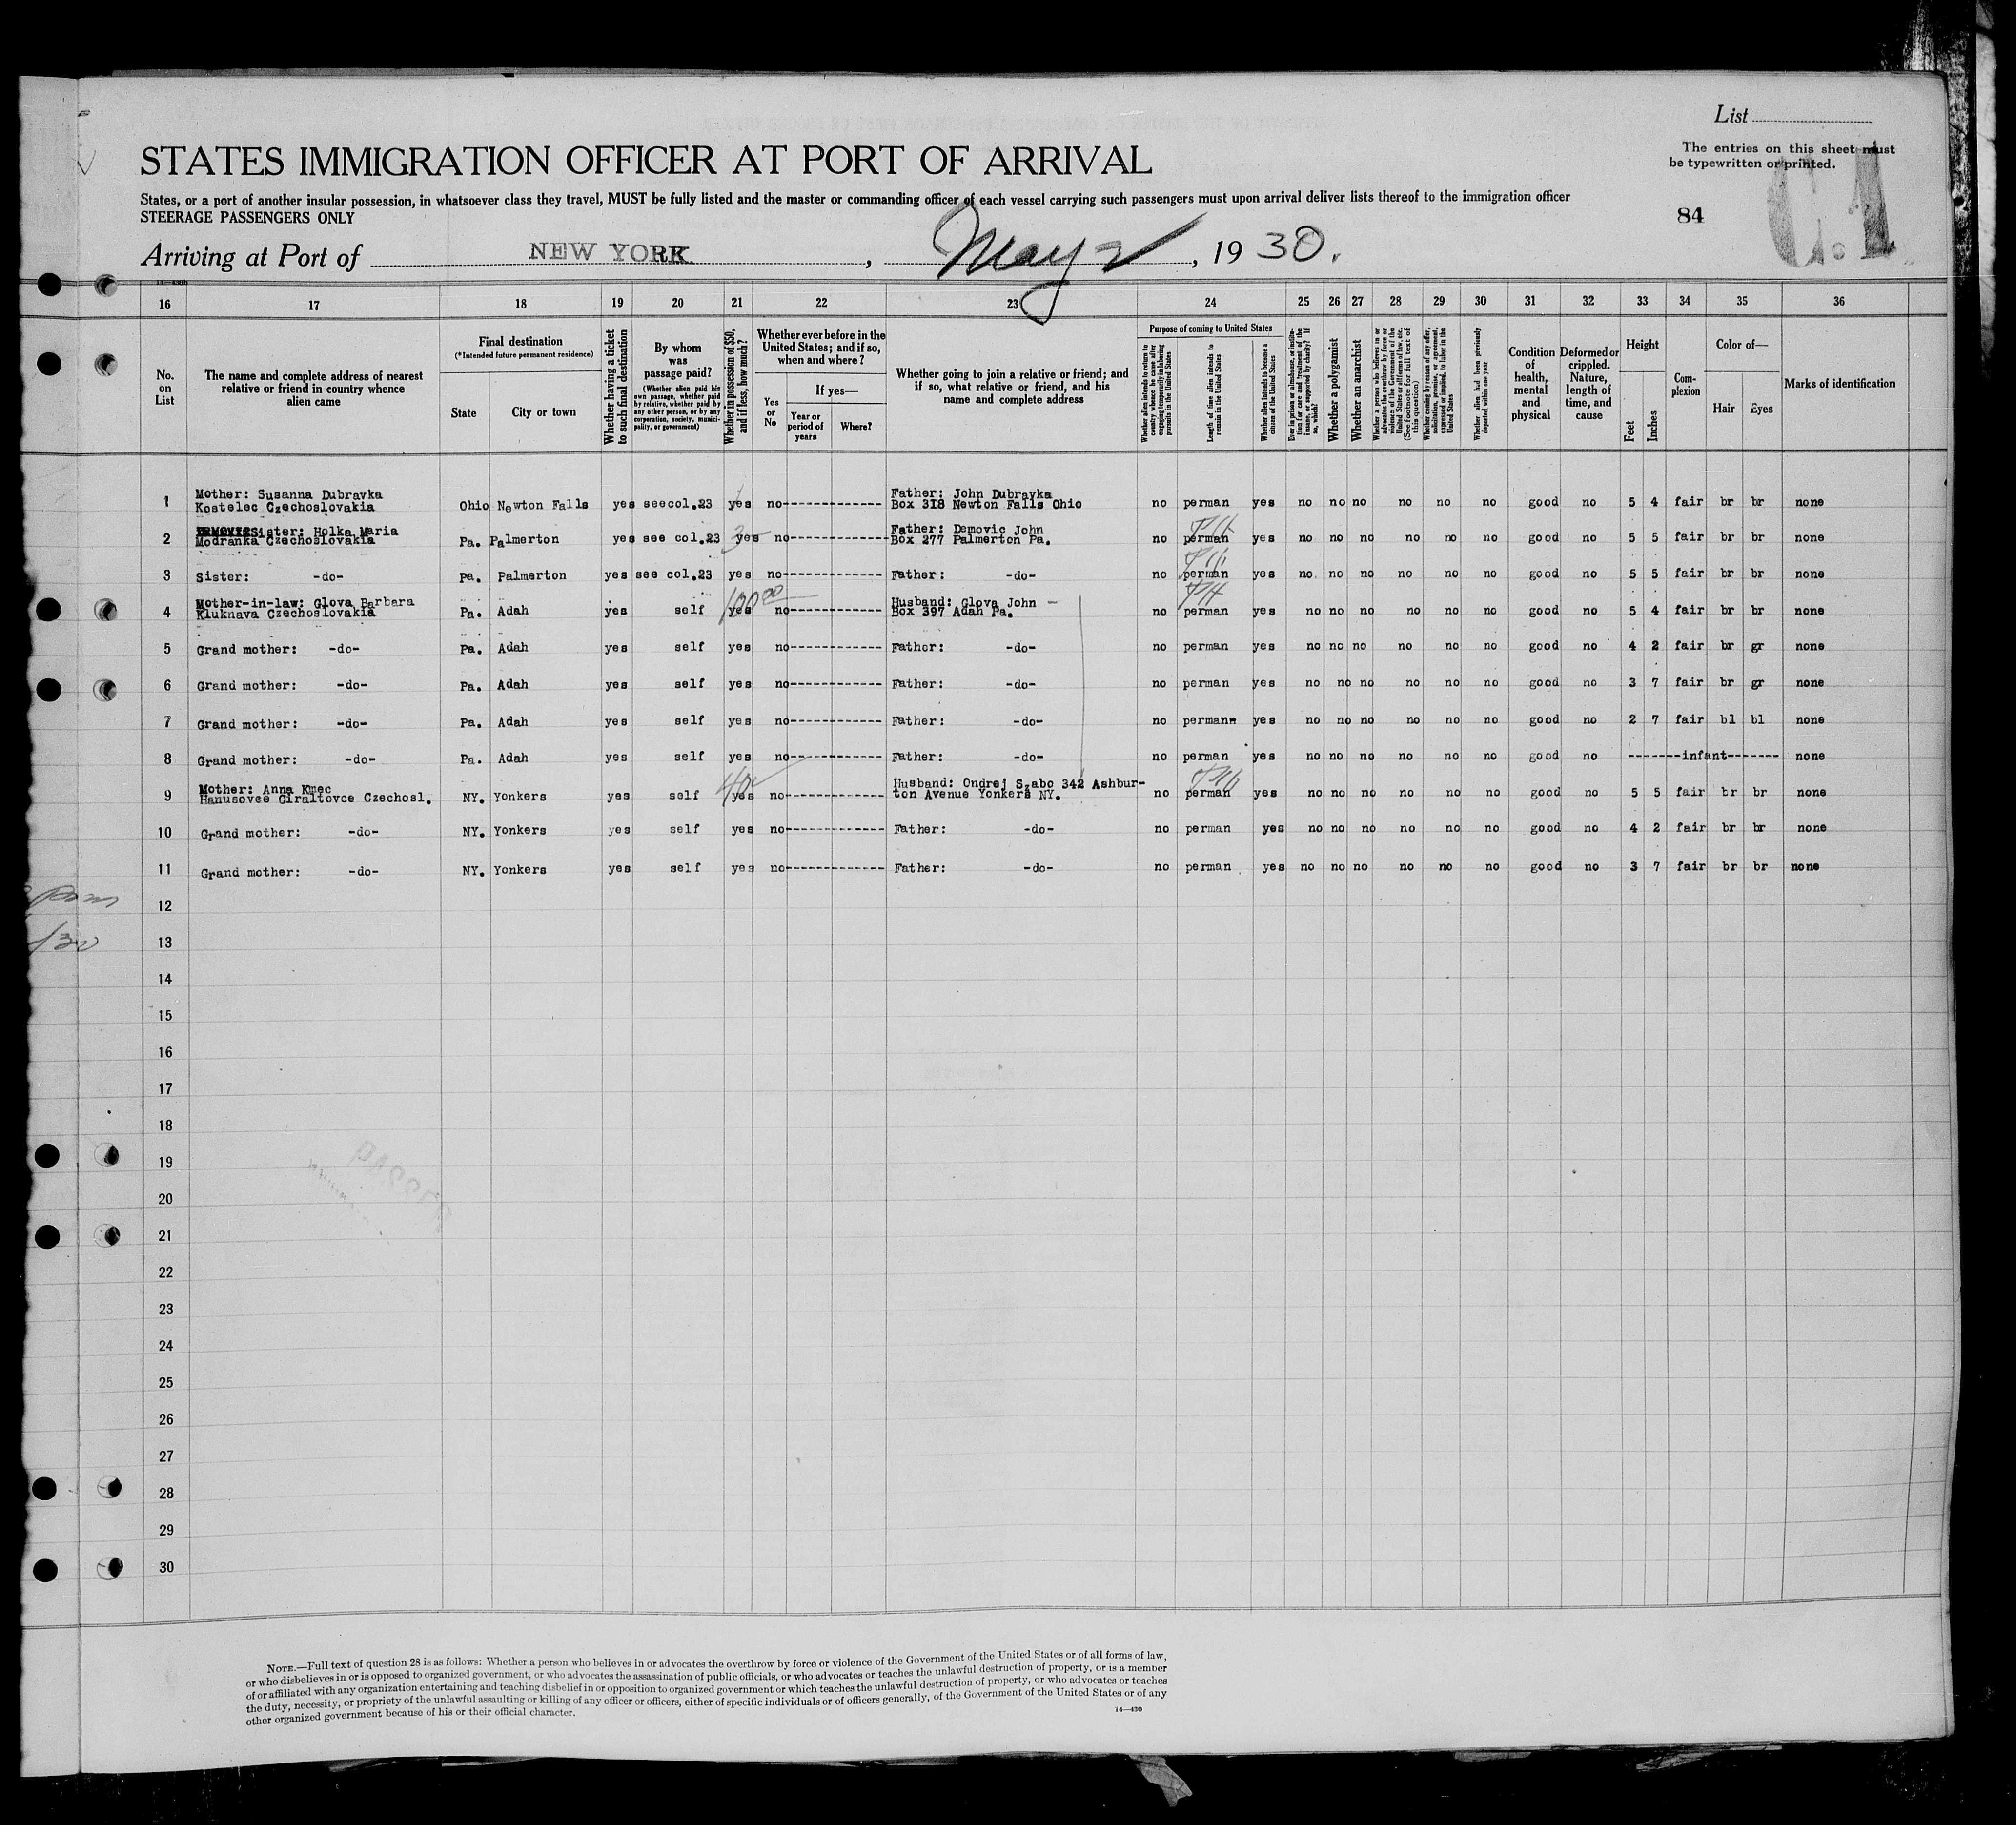 List
The entries on this sheet must
be typewritten or printed.
STATES IMMIGRATION OFFICER AT PORT OF ARRIVAL
C.1
States, or a port of another insular possession, in whatsoever class they travel, MUST be fully listed and the master or commanding officer of each vessel carrying such passengers must upon arrival deliver lists thereof to the immigration officer
STEERAGE PASSENGERS ONLY
84
Arriving at Port of NEW YORK, May 2, 1930.
16 17 18 19 20 21 22 23 24 25 26 27 28 29 30 31 32 33 34 35 36
No. on List
The name and complete address of nearest relative or friend in country whence alien came
Final destination
(*Intended future permanent residence)
State
City or town
Whether having a ticket to such final destination
By whom was passage paid?
(Whether alien paid his own passage, whether paid by relative, whether paid by any other person, or by any corporation, society, municipality, or government)
Whether in possession of $50, and if less, how much?
Whether ever before in the United States; and if so, when and where?
Yes or No
If yes—
Year or period of years
Where?
Whether going to join a relative or friend; and if so, what relative or friend, and his name and complete address
Purpose of coming to United States
Whether alien intends to return to country whence he came after engaging temporarily in laboring pursuits in the United States
Length of time alien intends to remain in the United States
Whether alien intends to become a citizen of the United States
Ever in prison or almshouse, or institution for care and treatment of the insane, or supported by charity? If so, which?
Whether a polygamist
Whether an anarchist
Whether a person who believes in or advocates the overthrow by force or violence of the Government of the United States or all forms of law, etc. (See footnote for full text of this question)
Whether coming by reason of any offer, solicitation, promise, or agreement, expressed or implied, to labor in the United States
Whether alien had been previously deported within one year
Condition of health, mental and physical
Deformed or crippled. Nature, length of time, and cause
Height
Feet
Inches
Complexion
Color of—
Hair
Eyes
Marks of identification
1 Mother: Susanna Dubravka Kostelec Czechoslovakia Ohio Newton Falls yes seecol.23 yes no Father: John Dubravka Box 318 Newton Falls Ohio no perman yes no no no no no no good no 5 4 fair br br none
2 Sister: Holka Maria Modranka Czechoslovakia Pa. Palmerton yes see col.23 yes no Father: Demovic John Box 277 Palmerton Pa. no perman yes no no no no no no good no 5 5 fair br br none
3 Sister: -do- Pa. Palmerton yes see col.23 yes no Father: -do- no perman yes no. no no no no no good no 5 5 fair br br none
4 Mother-in-law: Glova Barbara Kluknava Czechoslovakia Pa. Adah yes self yes 100 00 no Husband: Glova John Box 397 Adah Pa. no perman yes no no no no no no good no 5 4 fair br br none
5 Grand mother: -do- Pa. Adah yes self yes no Father: -do- no perman yes no no no no no no good no 4 2 fair br gr none
6 Grand mother: -do- Pa. Adah yes self yes no Father: -do- no perman yes no no no no no no good no 3 7 fair br gr none
7 Grand mother: -do- Pa. Adah yes self yes no Father: -do- no permann yes no no no no no no good no 2 7 fair bl bl none
8 Grand mother: -do- Pa. Adah yes self yes no Father: -do- no perman yes no no no no no no good no -------infant------- none
9 Mother: Anna Kmec Hanusovce Giraltovce Czechosl. NY. Yonkers yes self yes no Husband: Ondrej Szabo 342 Ashbur-ton Avenue Yonkers NY. no perman yes no no no no no no good no 5 5 fair br br none
10 Grand mother: -do- NY. Yonkers yes self yes no Father: -do- no perman yes no no no no no no good no 4 2 fair br br none
11 Grand mother: -do- NY. Yonkers yes self yes no Father: -do- no perman yes no no no no no no good no 3 7 fair br br none
12
13
14
15
16
17
18
19
20
21
22
23
24
25
26
27
28
29
30
NOTE.—Full text of question 28 is as follows: Whether a person who believes in or advocates the overthrow by force or violence of the Government of the United States or of all forms of law,
or who disbelieves in or is opposed to organized government, or who advocates the assassination of public officials, or who advocates or teaches the unlawful destruction of property, or is a member
of or affiliated with any organization entertaining and teaching disbelief in or opposition to organized government or which teaches the unlawful destruction of property, or who advocates or teaches
the duty, necessity, or propriety of the unlawful assaulting or killing of any officer or officers, either of specific individuals or of officers generally, of the Government of the United States or of any
other organized government because of his or their official character.
14—430